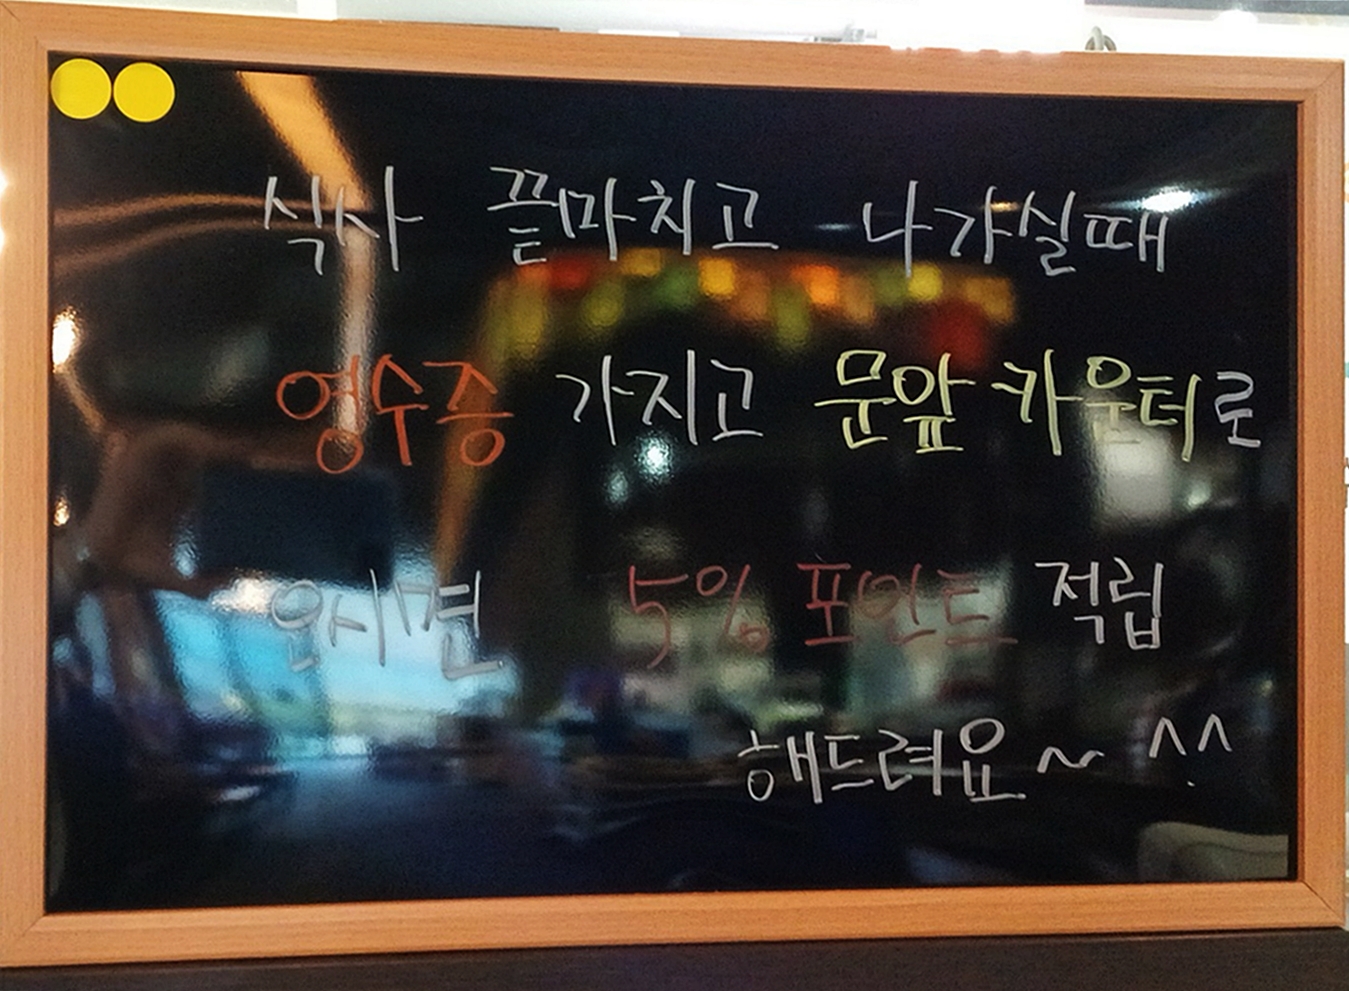 식사 끝마치고 나가실때
영수증 가지고 문앞 카운터로
오시면 5% 포인트 적립
해드려요~ ^^